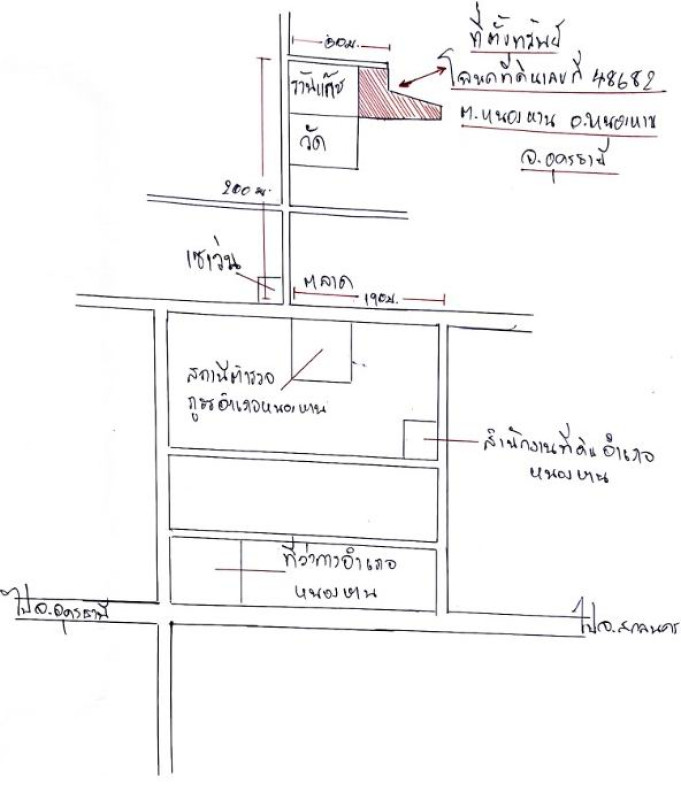 80ม.
ที่ตั้งทรัพย์
โฉนดที่ดินเลขที่ 48682
ต.หนองหาน อ.หนองหาน
จ.อุดรธานี
ร้านแก๊ซ
วัด
200 ม.
เซเว่น
ตลาด
190ม.
สถานีตำรวจ
ภูธรอำเภอหนองหาน
สำนักงานที่ดินอำเภอ
หนองหาน
ที่ว่าการอำเภอ
หนองหาน
ไปจ.อุดรธานี
ไปจ.สกลนคร